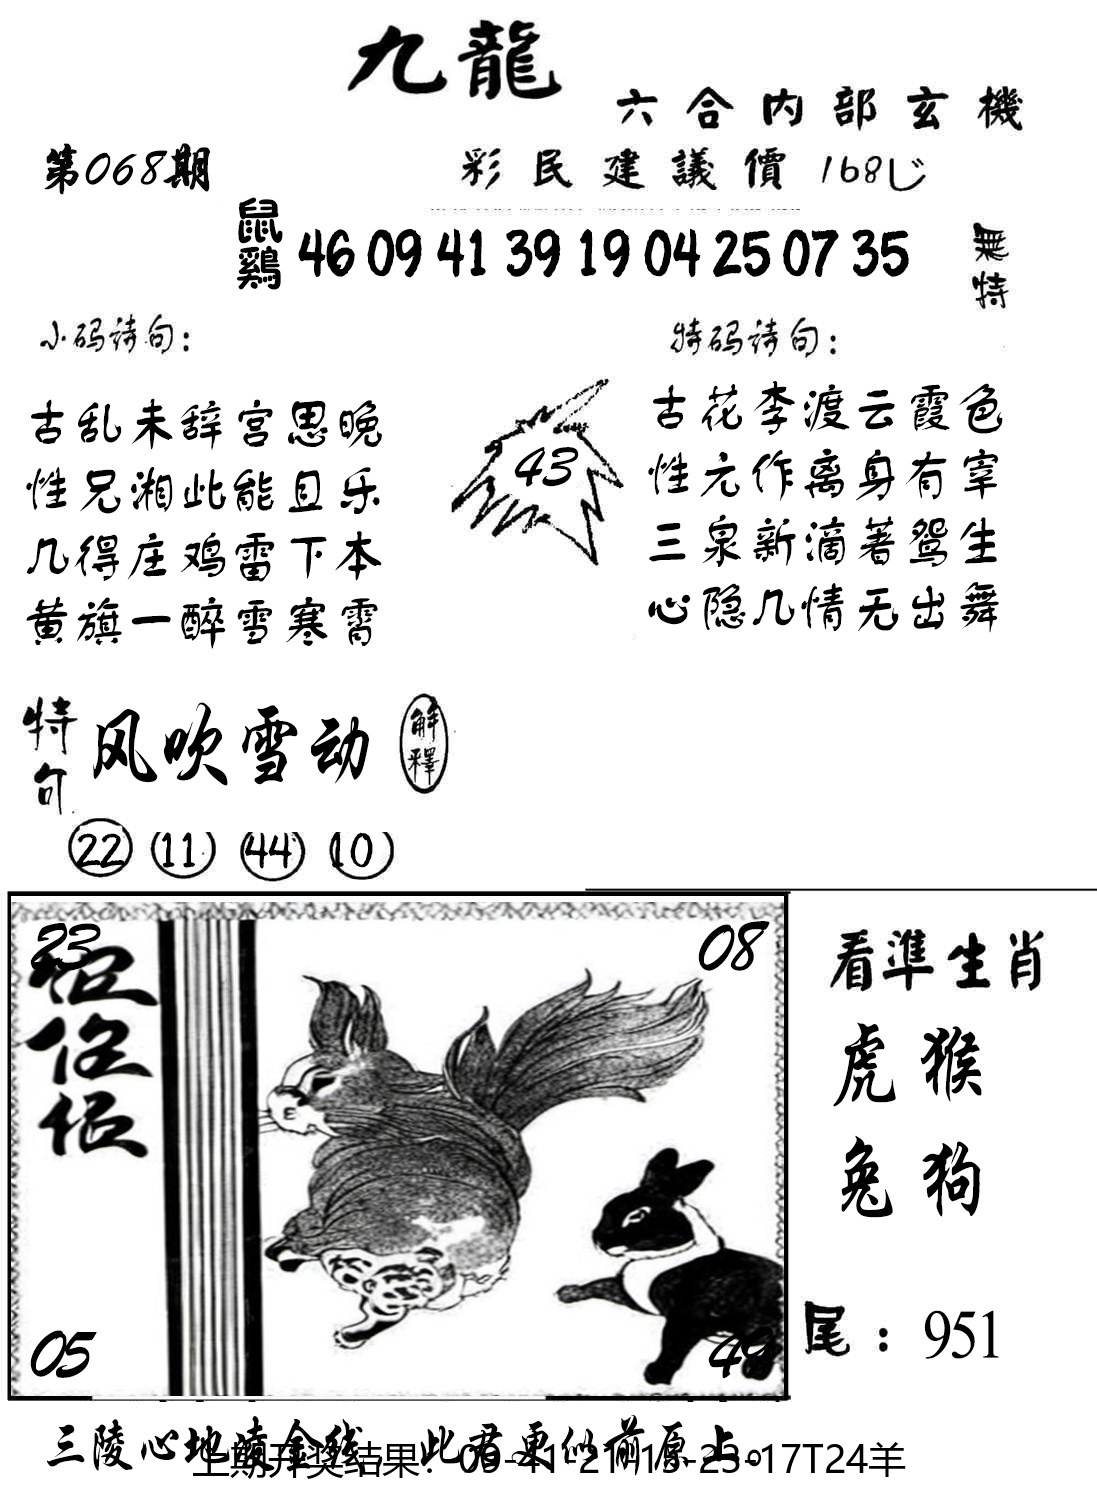 九龍
六合内部玄機
第068期
彩民建議價 168
鼠鷄 46 09 41 39 19 04 25 07 35
無特
小码诗句：
古乱未辞宫思晚
性兄湘此能且乐
几得庄鸡雷下本
黄旗一醉雪寒霄
43
特码诗句：
古花李渡云霞色
性元作离身有宰
三泉新滴著鸳生
心隐几情无出舞
特句 风吹雪动 解釋
22 11 44 10
23
08
05
49
看準生肖
虎猴
兔狗
尾：951
三陵心地 金 此君更似前原上。
上期开奖结果：09-41-21-15-23-17T24羊